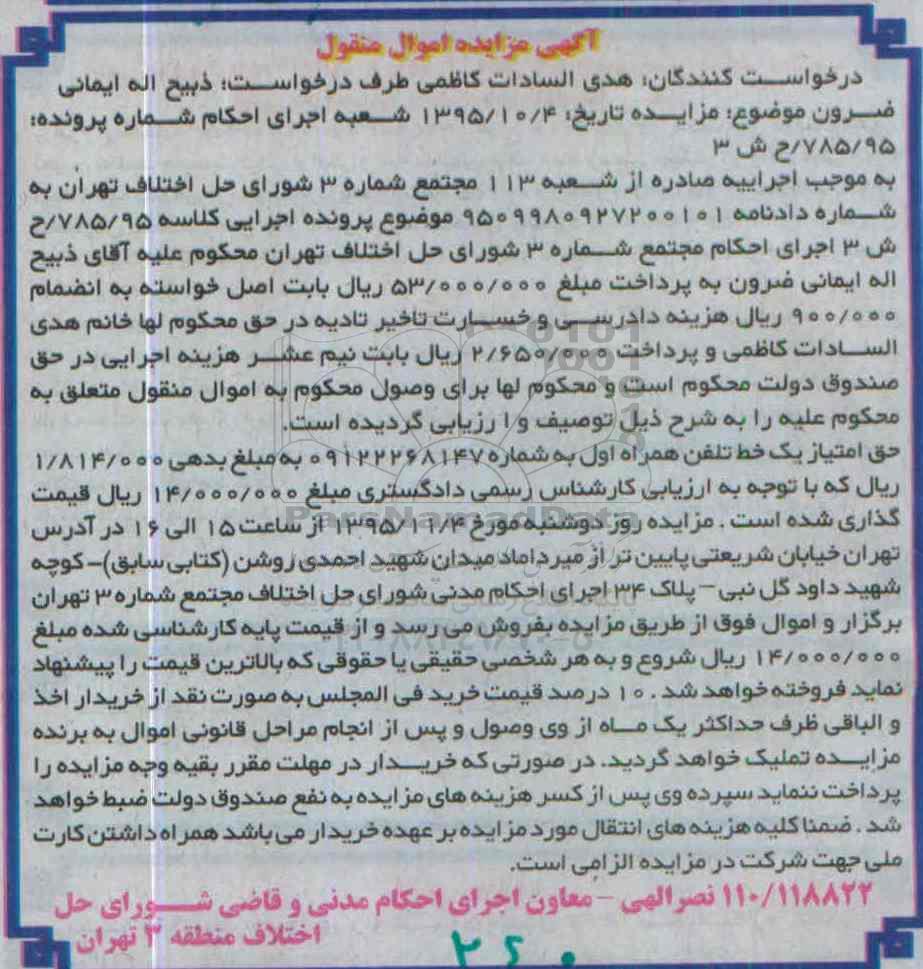 آگهی مزایده اموال منقول
درخواست کنندگان: هدی السادات کاظمی طرف درخواست: ذبیح اله ایمانی
ضرون موضوع: مزایده تاریخ: ۱۳۹۵/۱۰/۴ شعبه اجرای احکام شماره پرونده:
۷۸۵/۹۵/ح ش ۳
به موجب اجراییه صادره از شعبه ۱۱۳ مجتمع شماره ۳ شورای حل اختلاف تهران به
شماره دادنامه ۹۵۰۹۹۸۰۹۲۷۲۰۰۱۰۱ موضوع پرونده اجرایی کلاسه ۷۸۵/۹۵/ح
ش ۳ اجرای احکام مجتمع شماره ۳ شورای حل اختلاف تهران محکوم علیه آقای ذبیح
اله ایمانی ضرون به پرداخت مبلغ ۵۳/۰۰۰/۰۰۰ ریال بابت اصل خواسته به انضمام
۹۰۰/۰۰۰ ریال هزینه دادرسی و خسارت تاخیر تادیه در حق محکوم لها خانم هدی
السادات کاظمی و پرداخت ۲/۶۵۰/۰۰۰ ریال بابت نیم عشر هزینه اجرایی در حق
صندوق دولت محکوم است و محکوم لها برای وصول محکوم به اموال منقول متعلق به
محکوم علیه را به شرح ذیل توصیف و ا رزیابی گردیده است.
حق امتیاز یک خط تلفن همراه اول به شماره ۰۹۱۲۲۲۶۸۱۴۷ به مبلغ بدهی ۱/۸۱۴/۰۰۰
ریال که با توجه به ارزیابی کارشناس رسمی دادگستری مبلغ ۱۴/۰۰۰/۰۰۰ ریال قیمت
گذاری شده است . مزایده روز دوشنبه مورخ ۱۳۹۵/۱۱/۴ از ساعت ۱۵ الی ۱۶ در آدرس
تهران خیابان شریعتی پایین تر از میرداماد میدان شهید احمدی روشن (کتابی سابق)-کوچه
شهید داود گل نبی - پلاک ۳۴ اجرای احکام مدنی شورای حل اختلاف مجتمع شماره ۳ تهران
برگزار و اموال فوق از طریق مزایده بفروش می رسد و از قیمت پایه کارشناسی شده مبلغ
۱۴/۰۰۰/۰۰۰ ریال شروع و به هر شخصی حقیقی یا حقوقی که بالاترین قیمت را پیشنهاد
نماید فروخته خواهد شد . ۱۰ درصد قیمت خرید فی المجلس به صورت نقد از خریدار اخذ
و الباقی ظرف حداکثر یک ماه از وی وصول و پس از انجام مراحل قانونی اموال به برنده
مزایده تملیک خواهد گردید. در صورتی که خریدار در مهلت مقرر بقیه وجه مزایده را
پرداخت ننماید سپرده وی پس از کسر هزینه های مزایده به نفع صندوق دولت ضبط خواهد
شد . ضمنا کلیه هزینه های انتقال مورد مزایده بر عهده خریدار می باشد همراه داشتن کارت
ملی جهت شرکت در مزایده الزامی است.
۱۱۰/۱۱۸۸۲۲ نصرالهی - معاون اجرای احکام مدنی و قاضی شورای حل
اختلاف منطقه ۳ تهران
ParsNamadData